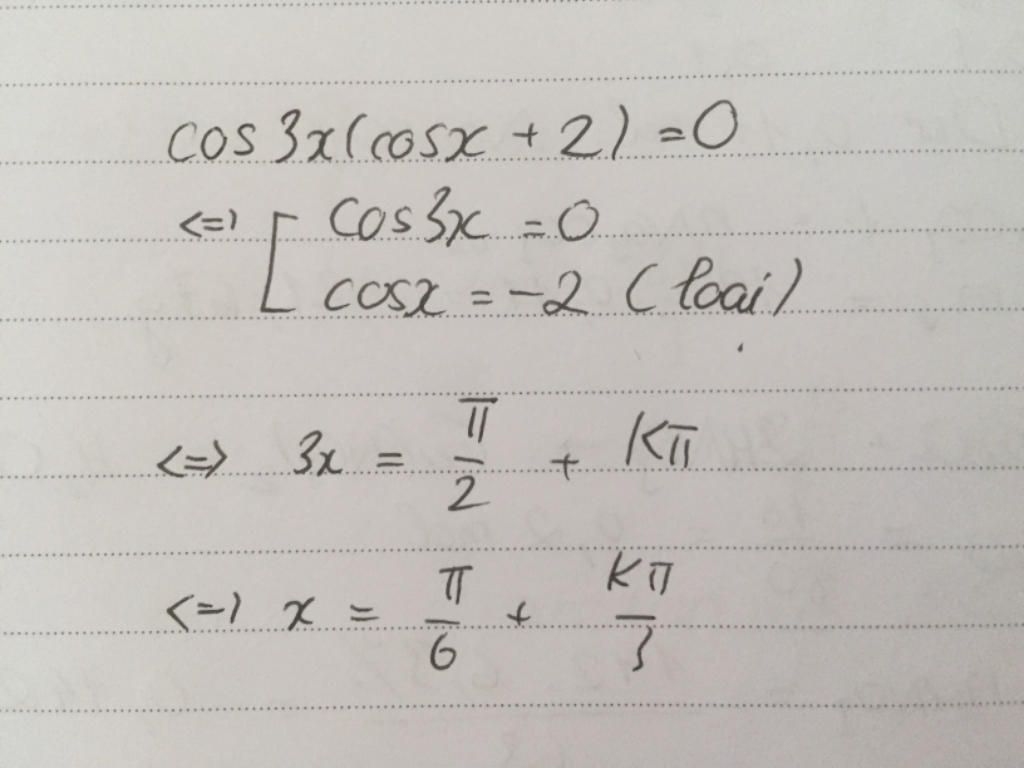 cos3x(cosx + 2) = 0
<=> [ cos3x = 0
cosx = -2 (loại)
<=> 3x = π/2 + kπ
<=> x = π/6 + kπ/3